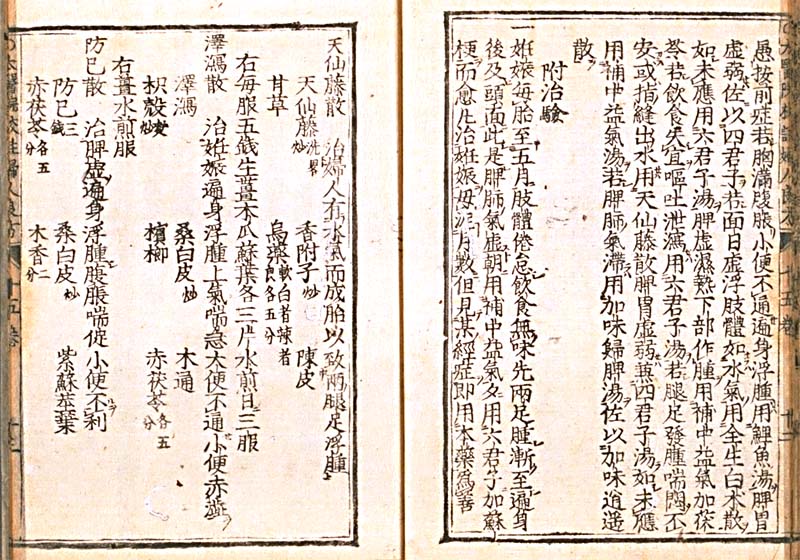 愚按前症若胸滿腹脹小便不通遍身浮腫用鯉魚湯脾胃
虛弱佐以四君子若面目虛浮肢體如水氣用全生白朮散
如未應用六君子湯脾虛濕熱下部作腫用補中益氣加茯
苓若飲食失宜嘔吐泄瀉用六君子湯若腿足發腫喘悶不
安或指縫出水用天仙藤散脾胃虛弱兼四君子湯如未應
用補中益氣湯若脾肺氣滯用加味歸脾湯佐以加味逍遙
散
附治驗
一妊娠每胎至五月肢體倦怠飲食無味先兩足腫漸至遍身
後及頭面此是脾肺氣虛朝用補中益氣夕用六君子加蘇
梗而愈凡治妊娠毋泥月數但見某經症即用本藥爲善
天仙藤散 治婦人有水氣而成胎以致兩腿足浮腫
天仙藤洗畧炒 香附子炒 陳皮
甘草 烏藥軟白者辣者良各五分
右每服五錢生薑木瓜蘇葉各三片水煎日三服
澤瀉散 治妊娠遍身浮腫上氣喘急大便不通小便赤澁
澤瀉 桑白皮炒 木通
枳殼麥炒 檳榔 赤茯苓各五分
右薑水煎服
防已散 治脾虛遍身浮腫腹脹喘促小便不利
防已三錢 桑白皮炒 紫蘇莖葉
赤茯苓各五分 木香二分